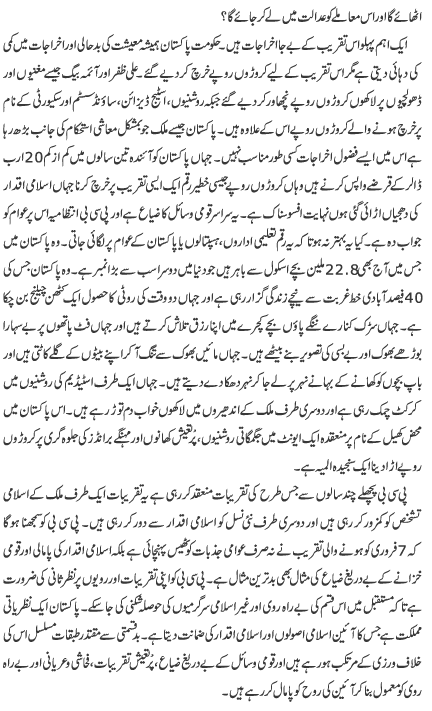 اٹھائے گا اور اس معاملے کو عدالت میں لے کر جائے گا؟
ایک اہم پہلو اس تقریب کے بے جا اخراجات ہیں۔ حکومت پاکستان ہمیشہ معیشت کی بدحالی اور اخراجات میں کمی
کی دہائی دیتی ہے مگر اس تقریب کے لیے کروڑوں روپے خرچ کر دیے گئے۔ علی ظفر اور آئمہ بیگ جیسے مغنیوں اور
ڈھولچیوں پر لاکھوں کروڑوں روپے نچھاور کر دیے گئے جبکہ روشنیوں، سٹیج ڈیزائن، ساؤنڈ سسٹم اور سکیورٹی کے نام
پر خرچ ہونے والے کروڑوں روپے اس کے علاوہ ہیں۔ پاکستان جیسے ملک جو بمشکل معاشی استحکام کی جانب بڑھ رہا
ہے اس میں ایسے فضول اخراجات کسی طور مناسب نہیں۔ جہاں پاکستان کو آئندہ تین سالوں میں کم از کم 20 ارب
ڈالر کے قرضے واپس کرنے ہیں وہاں کروڑوں روپے جیسی خطیر رقم ایک ایسی تقریب پر خرچ کرنا جہاں اسلامی اقدار کی
دھجیاں اڑائی گئی ہوں نہایت افسوسناک ہے۔ یہ سراسر قومی وسائل کا ضیاع ہے اور پی سی بی انتظامیہ اس پر عوام کو
جواب دہ ہے۔ کیا یہ بہتر نہ ہوتا کہ یہ رقم تعلیمی اداروں، ہسپتالوں یا پاکستان کے عوام پر لگائی جاتی۔ وہ پاکستان میں
جس میں آج بھی 22.8 ملین بچے اسکول سے باہر ہیں جو دنیا میں دوسرا سب سے بڑا نمبر ہے۔ وہ پاکستان جس کی
40 فیصد آبادی خط غربت سے نیچے زندگی گزار رہی ہے اور جہاں دو وقت کی روٹی کا حصول ایک کٹھن چیلنج بن چکا
ہے۔ جہاں سڑک کنارے ننگے پاؤں بچے کچرے میں اپنا رزق تلاش کرتے ہیں اور جہاں فٹ پاتھوں پر بے سہارا
بوڑھے بھوک اور بے بسی کی تصویر بنے بیٹھے ہیں۔ جہاں مائیں بھوک سے تنگ آ کر اپنے بیٹوں کے گلے کاٹتی ہیں اور
باپ بچوں کو کھانے کے بہانے نہر پر لے جا کر نہر دھکا دے دیتے ہیں۔ جہاں ایک طرف اسٹیڈیم کی روشنیوں میں
کرکٹ چمک رہی ہے اور دوسری طرف ملک کے اندھیروں میں لاکھوں خواب دم توڑ رہے ہیں۔ اس پاکستان میں
محض کھیل کے نام پر منعقدہ ایک ایونٹ میں جگمگاتی روشنیوں، پُرتعیش کھانوں اور مہنگے برانڈز کی جلوہ گری پر کروڑوں
روپے اڑا دینا ایک سنجیدہ المیہ ہے۔
پی سی بی پچھلے چند سالوں سے جس طرح کی تقریبات منعقد کر رہی ہے یہ تقریبات ایک طرف ملک کے اسلامی
تشخص کو کمزور کر رہی ہیں اور دوسری طرف نئی نسل کو اسلامی اقدار سے دور کر رہی ہیں۔ پی سی بی کو سمجھنا ہوگا
کہ 7 فروری کو ہونے والی تقریب نے نہ صرف عوامی جذبات کو ٹھیس پہنچائی ہے بلکہ اسلامی اقدار کی پامالی اور قومی
خزانے کے بے دریغ ضیاع کی مثال بھی بدترین مثال ہے۔ پی سی بی کو اپنی تقریبات اور رویوں پر نظر ثانی کی ضرورت
ہے تاکہ مستقبل میں اس قسم کی بے راہ روی اور غیر اسلامی سرگرمیوں کی حوصلہ شکنی کی جا سکے۔ پاکستان ایک نظریاتی
مملکت ہے جس کا آئین اسلامی اصولوں اور اسلامی اقدار کی ضمانت دیتا ہے۔ بدقسمتی سے مقتدر طبقات مسلسل اس کی
خلاف ورزی کے مرتکب ہو رہے ہیں اور قومی وسائل کے بے دریغ ضیاع، پُرتعیش تقریبات، فحاشی و عریانی اور بے راہ
روی کو معمول بنا کر آئین کی روح کو پامال کر رہے ہیں۔